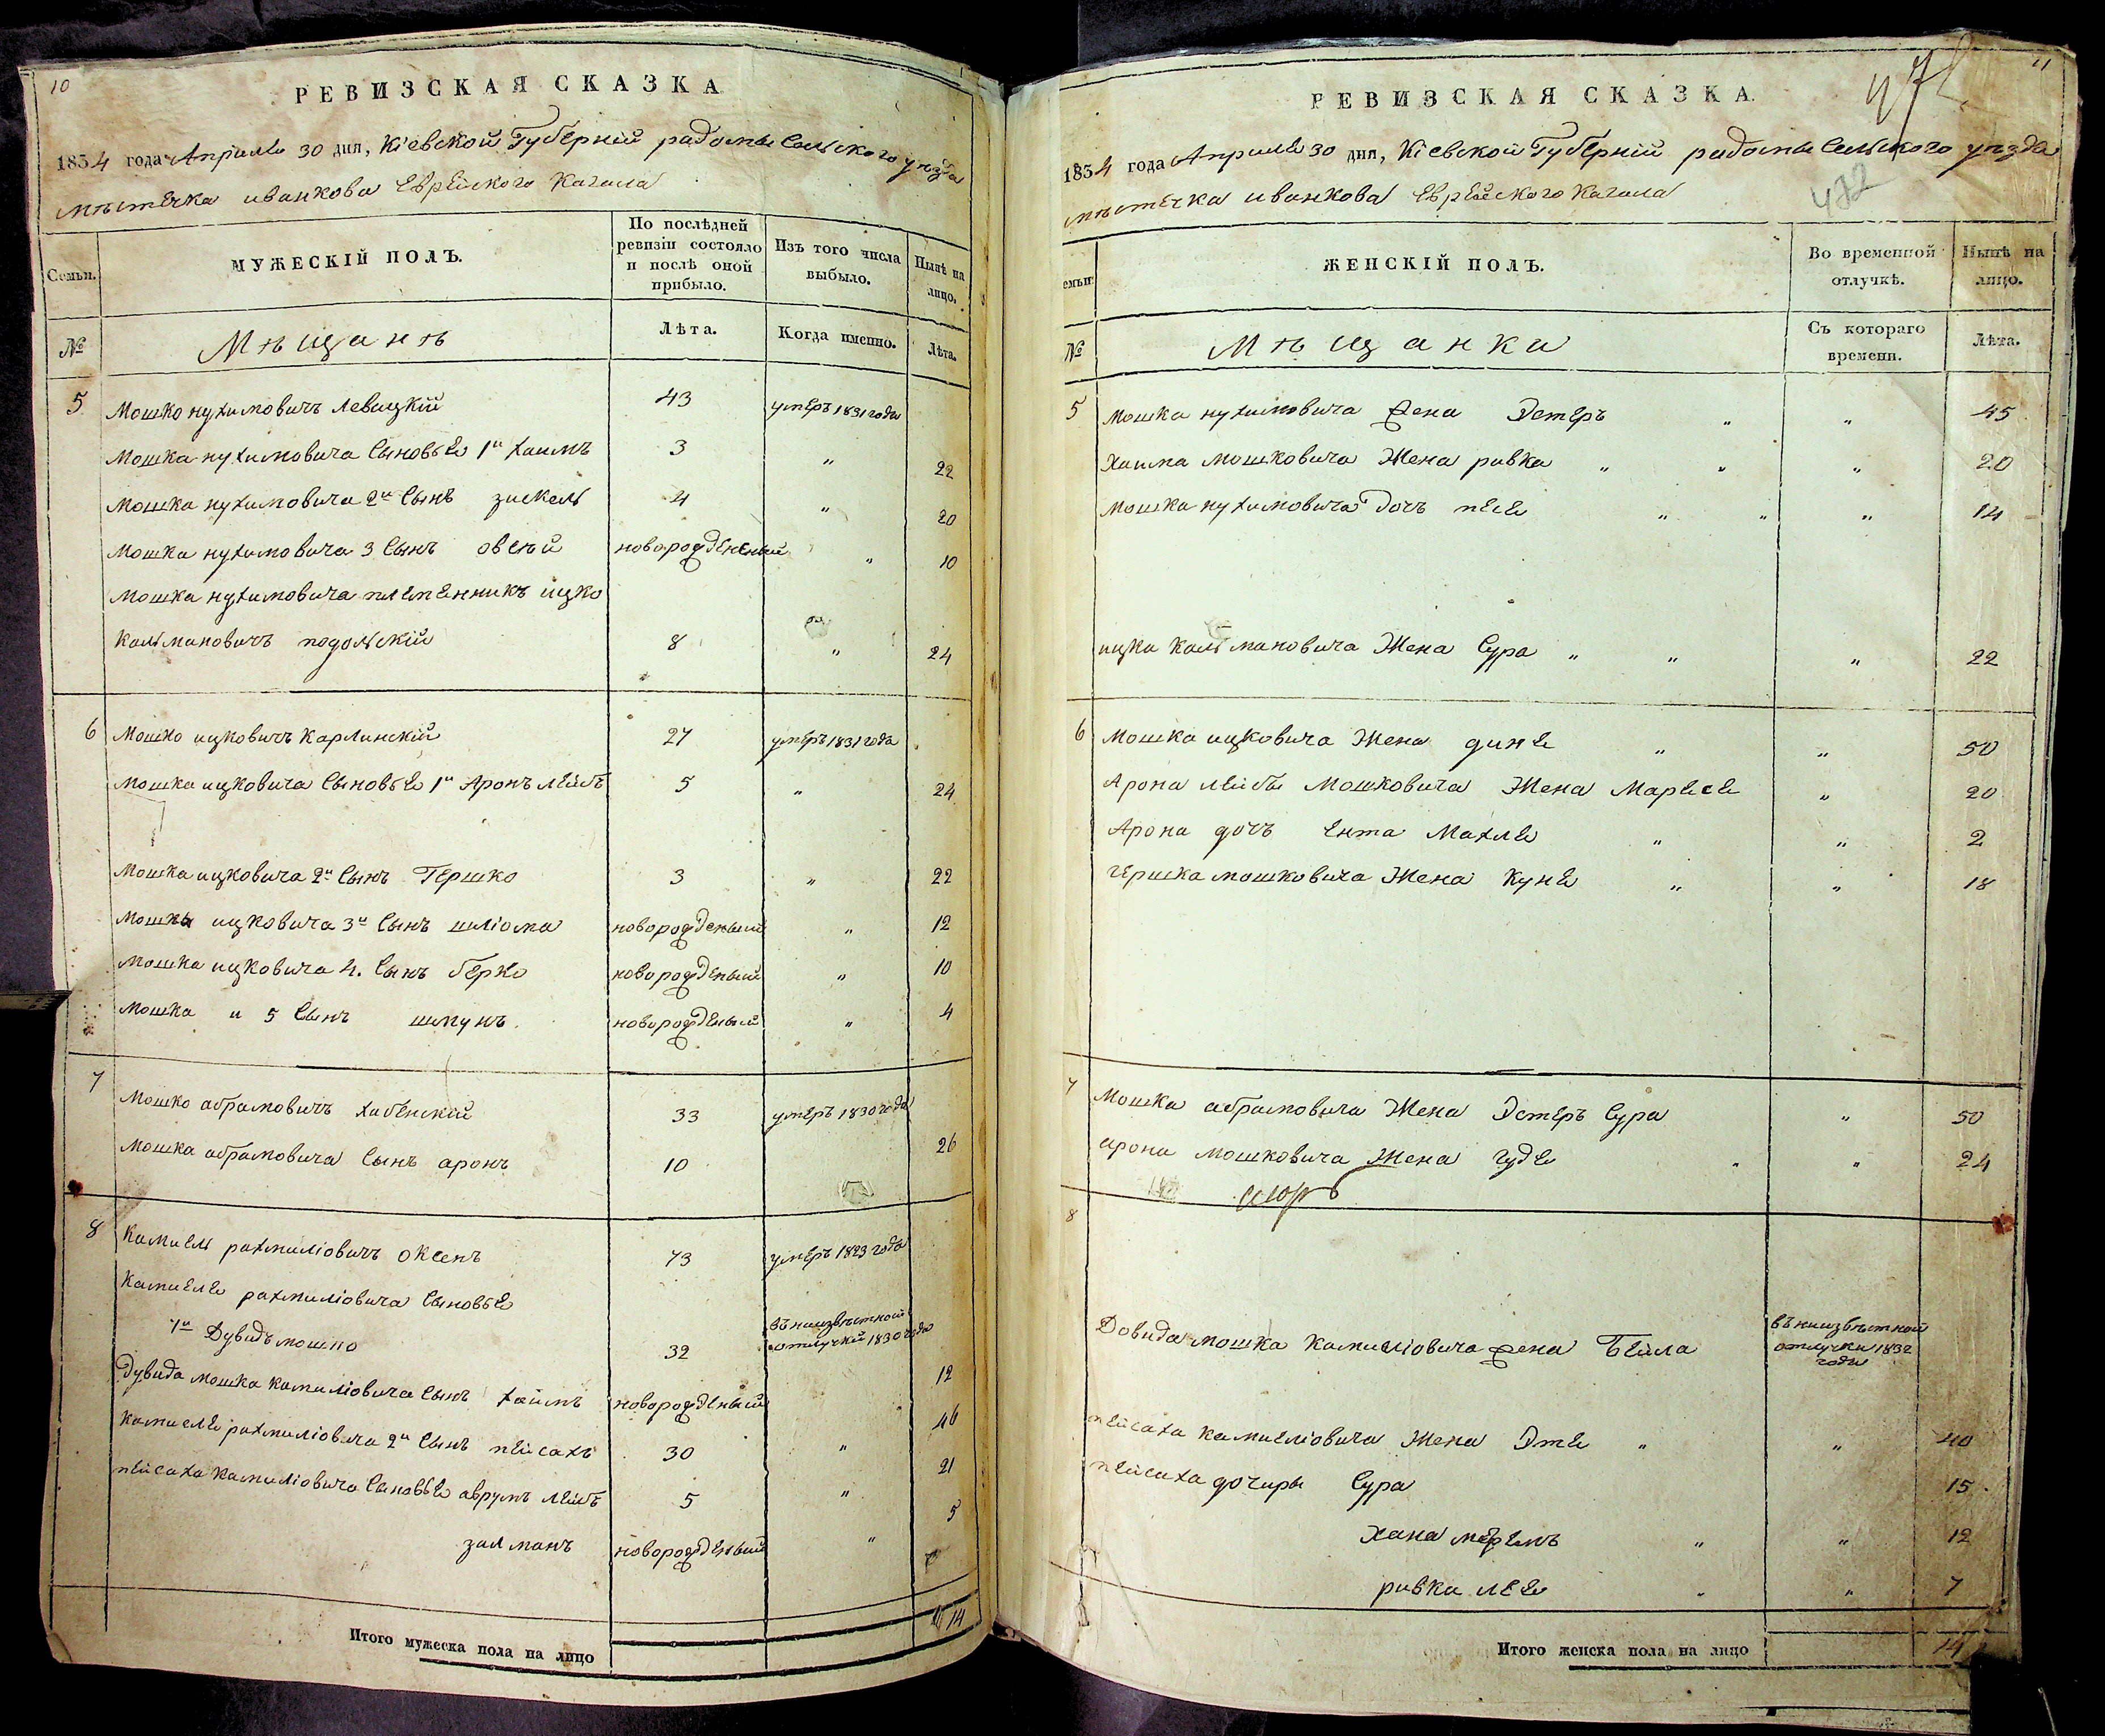 10
РЕВИЗСКАЯ СКАЗКА
1834 года Априля 30 дня, Кіевской Губерніи радомысельского уезда
мѣстечка иванкова Еврейского Кагала
Семьи.
МУЖЕСКІЙ ПОЛЪ.
По послѣдней ревизіи состояло и послѣ оной прибыло.
Изъ того числа выбыло.
Нынѣ на лицо.
№
Мѣщанѣ
Лѣта.
Когда именно.
Лѣта.
5 Мошко нухимовичъ Левицкій 43 умеръ 1831 года
Мошка нухимовича Сыновье 1й хаимъ 3 " 22
Мошка нухимовича 2й Сынъ зискель 4 " 20
Мошка нухимовича 3 Сынъ овсѣй новорожденный " 10
Мошка нухимовича племенникъ ицко
Кальмановичъ подольскій 8 " 24
6 Мошко ицковичъ Карлинскій 27 умеръ 1831 года
Мошка ицковича Сыновье 1й Аронъ лейбъ 5 " 24
Мошка ицковича 2й Сынъ Гершко 3 " 22
Мошка ицковича 3й Сынъ шліома новорожденый " 12
Мошка ицковича 4. Сынъ берко новорожденый " 10
Мошка и 5 Сынъ шмунъ новорожденый " 4
7 Мошко абрамовичъ хабенскій 33 умеръ 1830 года
Мошка абрамовича Сынъ аронъ 10 26
8 Камиель рахмиліовичъ оксенъ 73 умеръ 1823 года
Камиеле рахмиліовича Сыновье
1й Дувидъ мошко 32 въ ниизвѣстной отлучкй 1830 года
Дувида мошка камиліовича Сынъ хаимъ новорожденый 12
Камиеле рахмиліовича 2й Сынъ пейсахъ 30 " 46
пейсаха Камиліовича Сыновье аврумъ лейбъ 5 " 21
залманъ новорожденый " 5
Итого мужеска пола на лицо 14
11
РЕВИЗСКАЯ СКАЗКА.
472
1834 года Априля 30 дня, Кіевской Губерніи радомысельского уезда
мѣстечка иванкова Еврейского Кагала
емьи
ЖЕНСКІЙ ПОЛЪ.
Во временной отлучкѣ.
Нынѣ на лицо.
№
Мѣщанка
Съ котораго времени.
Лѣта.
5 Мошка нухимовича жена Эстеръ " " 45
Хаима мошковича Жена ривка " " " 20
Мошка нухимовича Дочъ песе " " " 14
ицка Кальмановича Жена Сура " " " 22
6 Мошка ицковича Жена дине " " 50
Арона лейбы Мошковича Жена Марьесе " 20
Арона дочъ Ента Махле " " 2
гершка мошковича Жена Куне " " 18
7 Мошка абрамовича Жена Эстеръ Сура " 50
арона мошковича Жена гуде " " 24
8
Довида мошка Камиеліовича жена Бейла въ ниизвѣстной отлучки 1832 года
пейсаха камиеліовича Жена Эте " " 40
пейсаха дочиры Сура 15
Хана меремъ " " 12
ривка лее " " 7
Итого женска пола на лицо 14